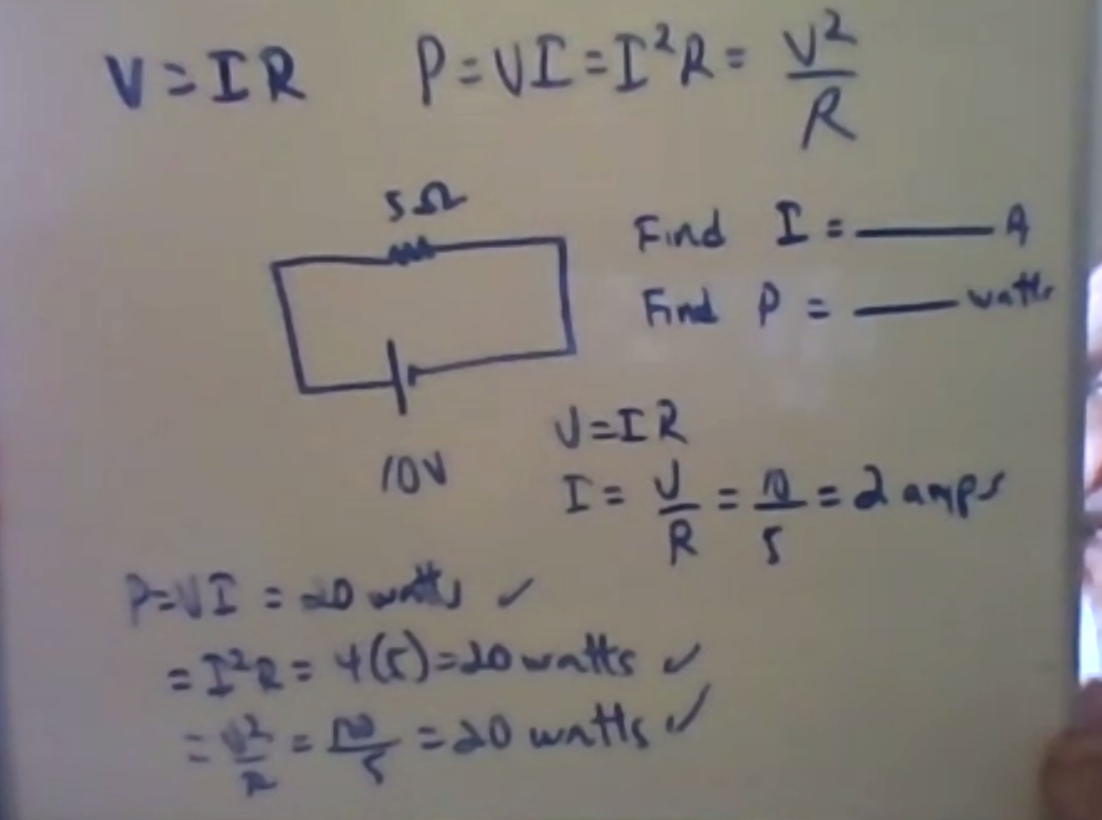 V = IR P = VI = I²R = V²/R
5Ω
Find I = ____ A
Find P = ____ watts
10V
V = IR
I = V/R = 10/5 = 2 amps
P = VI = 20 watts ✓
= I²R = 4(5) = 20 watts ✓
= V²/R = 100/5 = 20 watts ✓